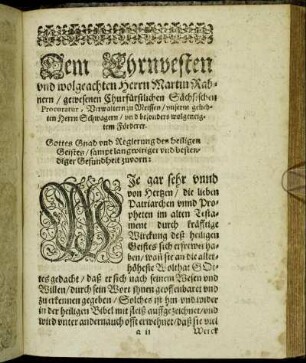 Dem Ehrnvesten
vnd wolgeachten Herrn Martin Rah-
nern / gewesenen Churfürstlichen Sächsischen
Procurator, Verwaltern zu Meissen / vnserm geehr-
ten Herrn Schwagern / vnd besonders wolgeneig-
tem Förderer.
Gottes Gnad vnd Regierung des heiligen
Geistes / sampt langwiriger vnd besten-
diger Gesundheit zuvorn:
WJe gar sehr vnnd
von Hertzen / die lieben
Patriarchen vnnd Pro-
pheten im alten Testa-
ment durch kräfftige
Würckung deß heiligen
Geistes sich erfrewet ha-
ben / wañ sie an die aller-
höheste Wolthat GOt-
tes gedacht / daß er sich nach seinem Wesen vnd
Willen / durch sein Wort ihnen geoffenbaret vnd
zu erkennen gegeben / Solches ist hin vnd wider
in der heiligen Bibel mit fleiß auffgezeichnet / vnd
wird vnter andern auch offt erwehnet / daß sie viel
a ii Werck